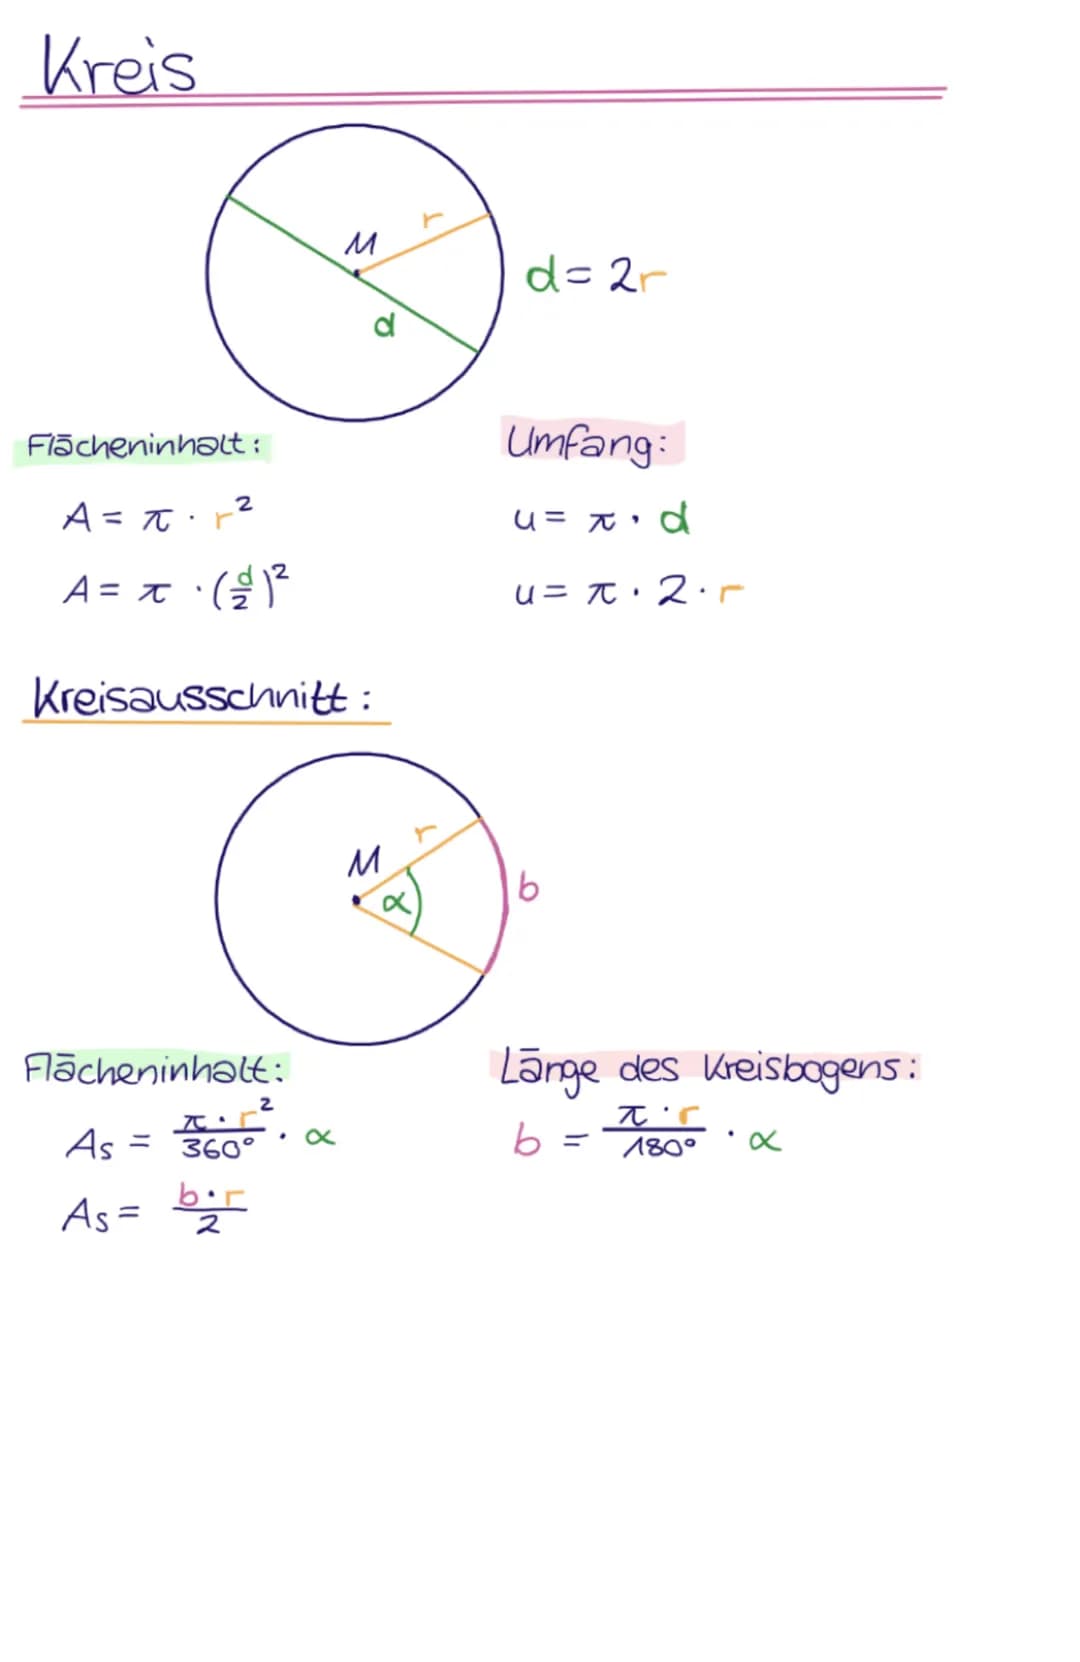 Kreis
M
r
d
d = 2r
Flächeninhalt:
A = π · r²
A = π · (d/2)²
Umfang:
u = π · d
u = π · 2 · r
Kreisausschnitt:
M
r
α
b
Flächeninhalt:
As = π · r²/360° · α
As = b · r/2
Länge des Kreisbogens:
b = π · r/180° · α